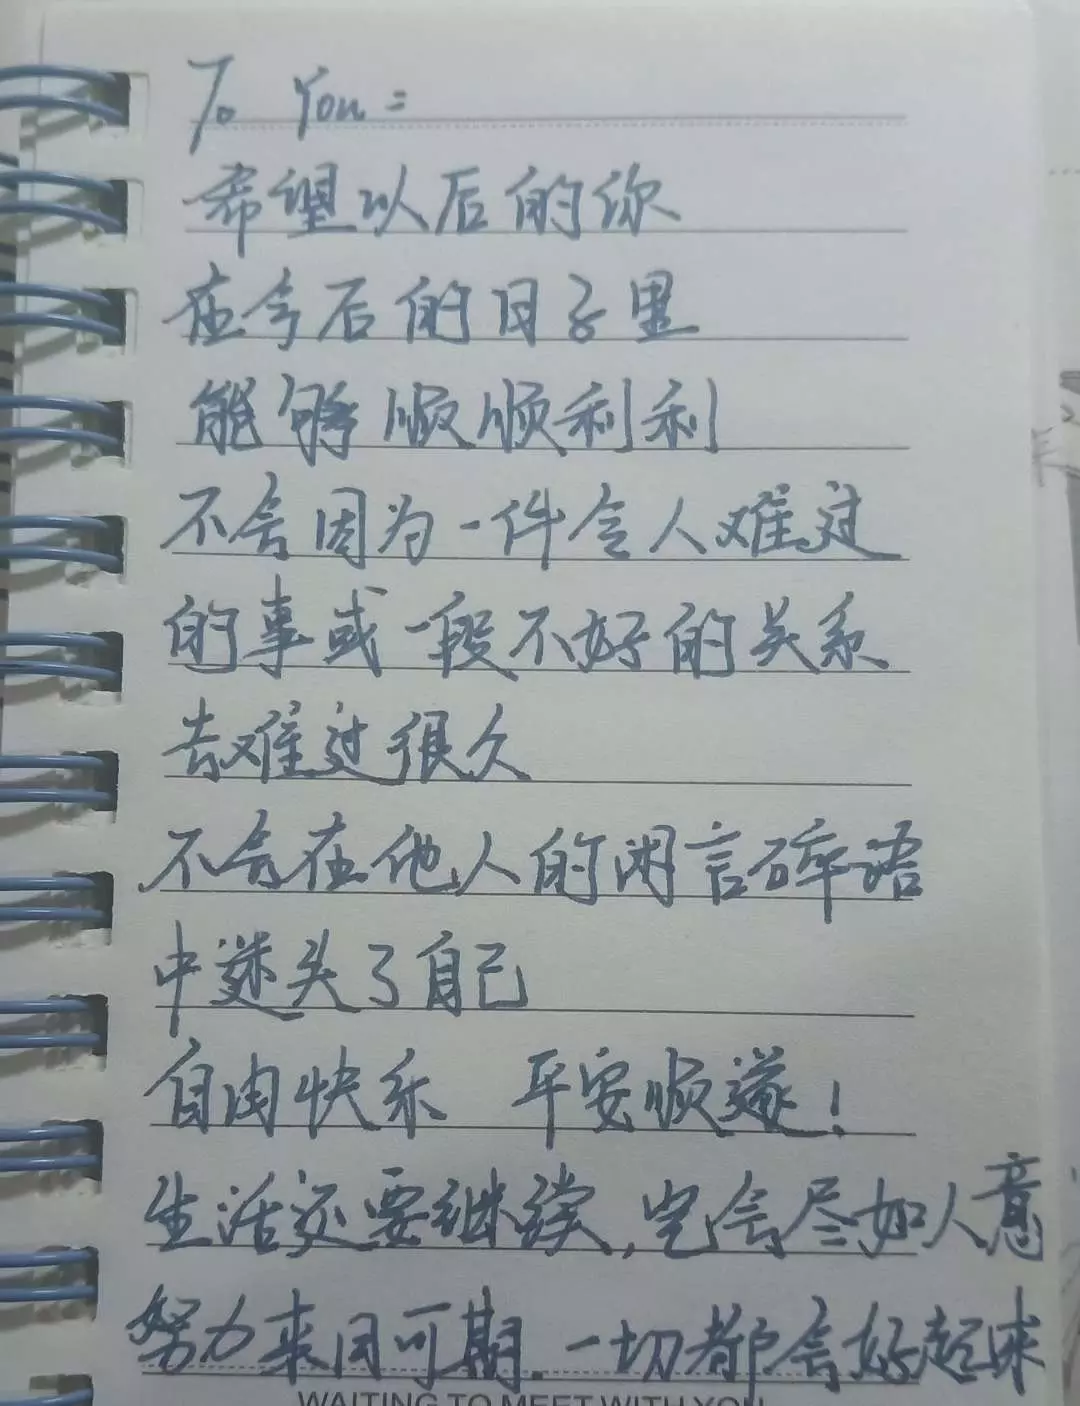 To You:
希望以后的你
在今后的日子里
能够顺顺利利
不会因为一件令人难过
的事或一段不好的关系
去难过很久
不会在他人的闲言碎语
中迷失了自己
自由快乐 平安顺遂!
生活还要继续,定会尽如人意
努力来日可期.一切都会好起来
WAITING TO MEET WITH YOU